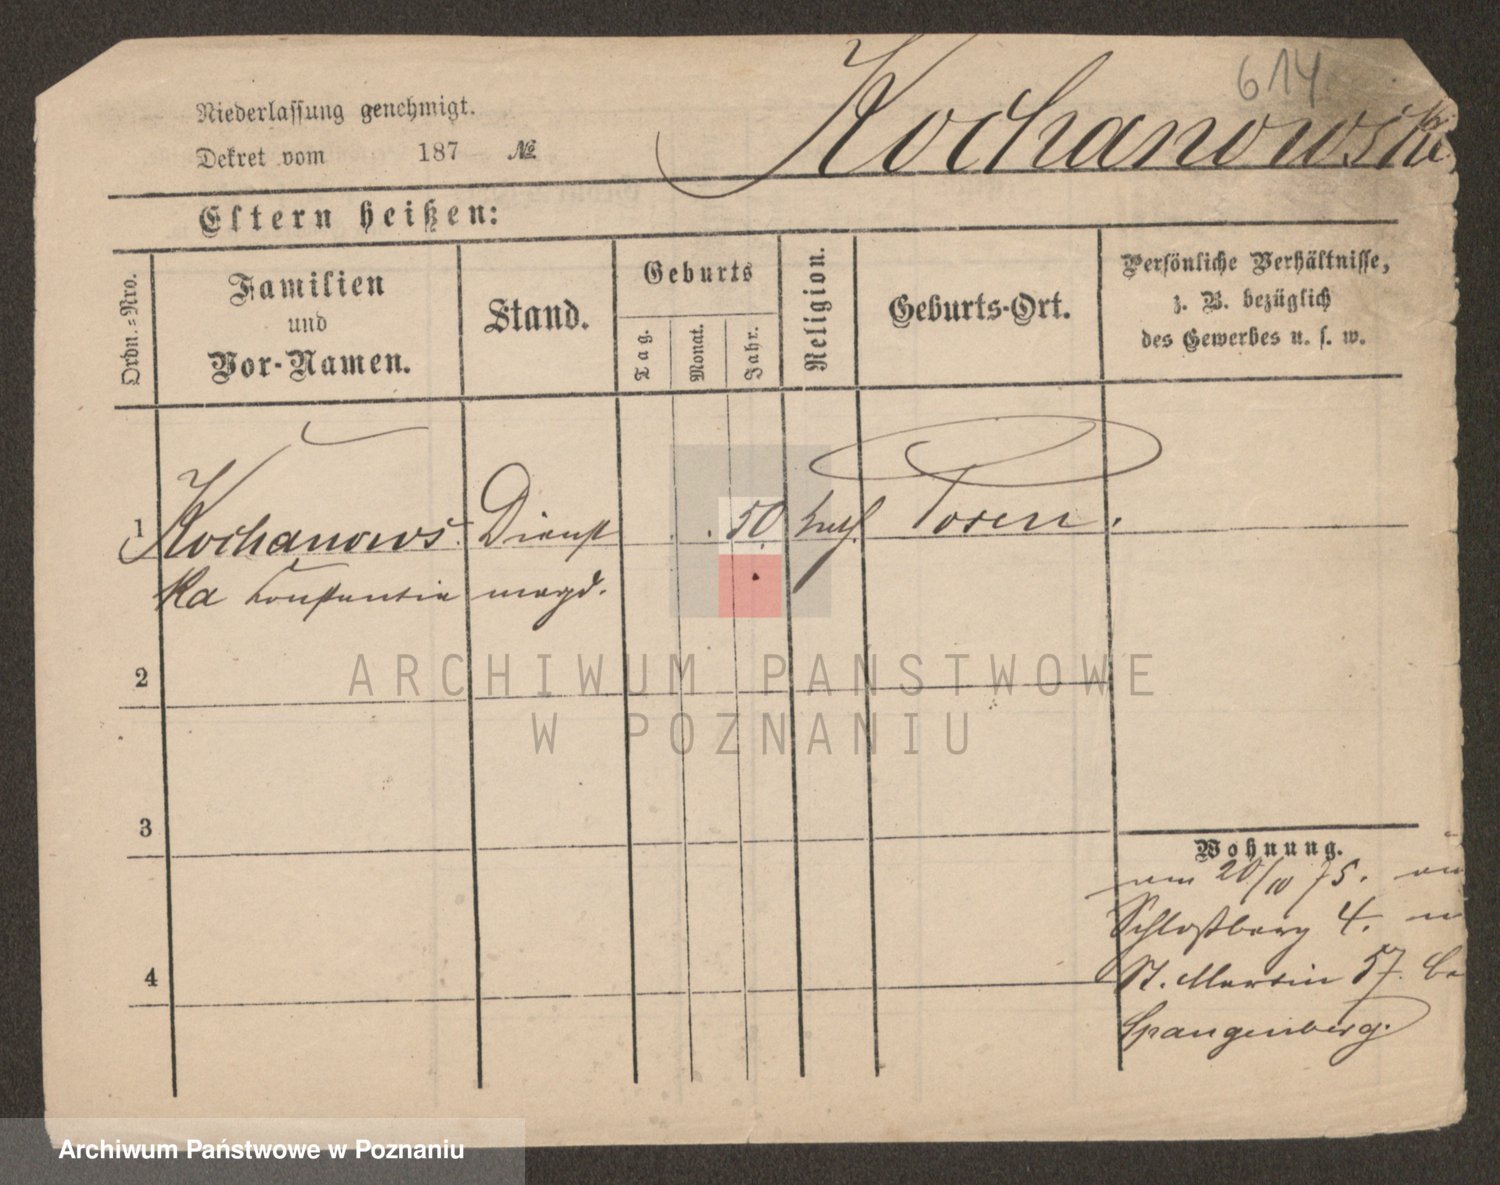 614
Kochanowski
Niederlassung genehmigt.
Dekret vom 187 №
Eltern heißen:
Ordn.=Nro.
Familien
und
Vor-Namen.
Stand.
Geburts
Tag.
Monat.
Jahr.
Religion.
Geburts-Ort.
Persönliche Verhältnisse,
z. B. bezüglich
des Gewerbes u. s. w.
1 Kochanows Dienst 50 kath. Posen.
ka Konstantia magd.
2
3
4
Wohnung.
am 20/10 75.
Schloßberg 4.
St. Martin 57. be
Spangenberg.
ARCHIWUM PAŃSTWOWE
W POZNANIU
Archiwum Państwowe w Poznaniu